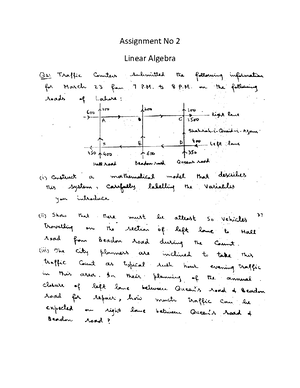 Assignment No 2
Linear Algebra
Q2: Traffic Counters submitted the following information
for March 23 from 7 P.M. to 8 P.M. on the following
roads of Lahore:
600 400 200 100
A B C Right lane
1500
Shahrah-i-Quaid-e-Azam
D Left lane
350 400 600 350 450
Mall road Beadon road Queens road
(i) Construct a mathematical model that describes
this system. Carefully labelling the variables
you introduce
(ii) Show that there must be atleast 50 vehicles
travelling on the section of left lane to Mall
road from Beadon road during the Count.
(iii) The City planners are inclined to take this
traffic Count as typical rush hour evening traffic
in this area. In their planning of the annual
closure of left lane between Queen's road & Beadon
road for repair, how much traffic can be
expected on right lane between Queen's road &
Beadon road?